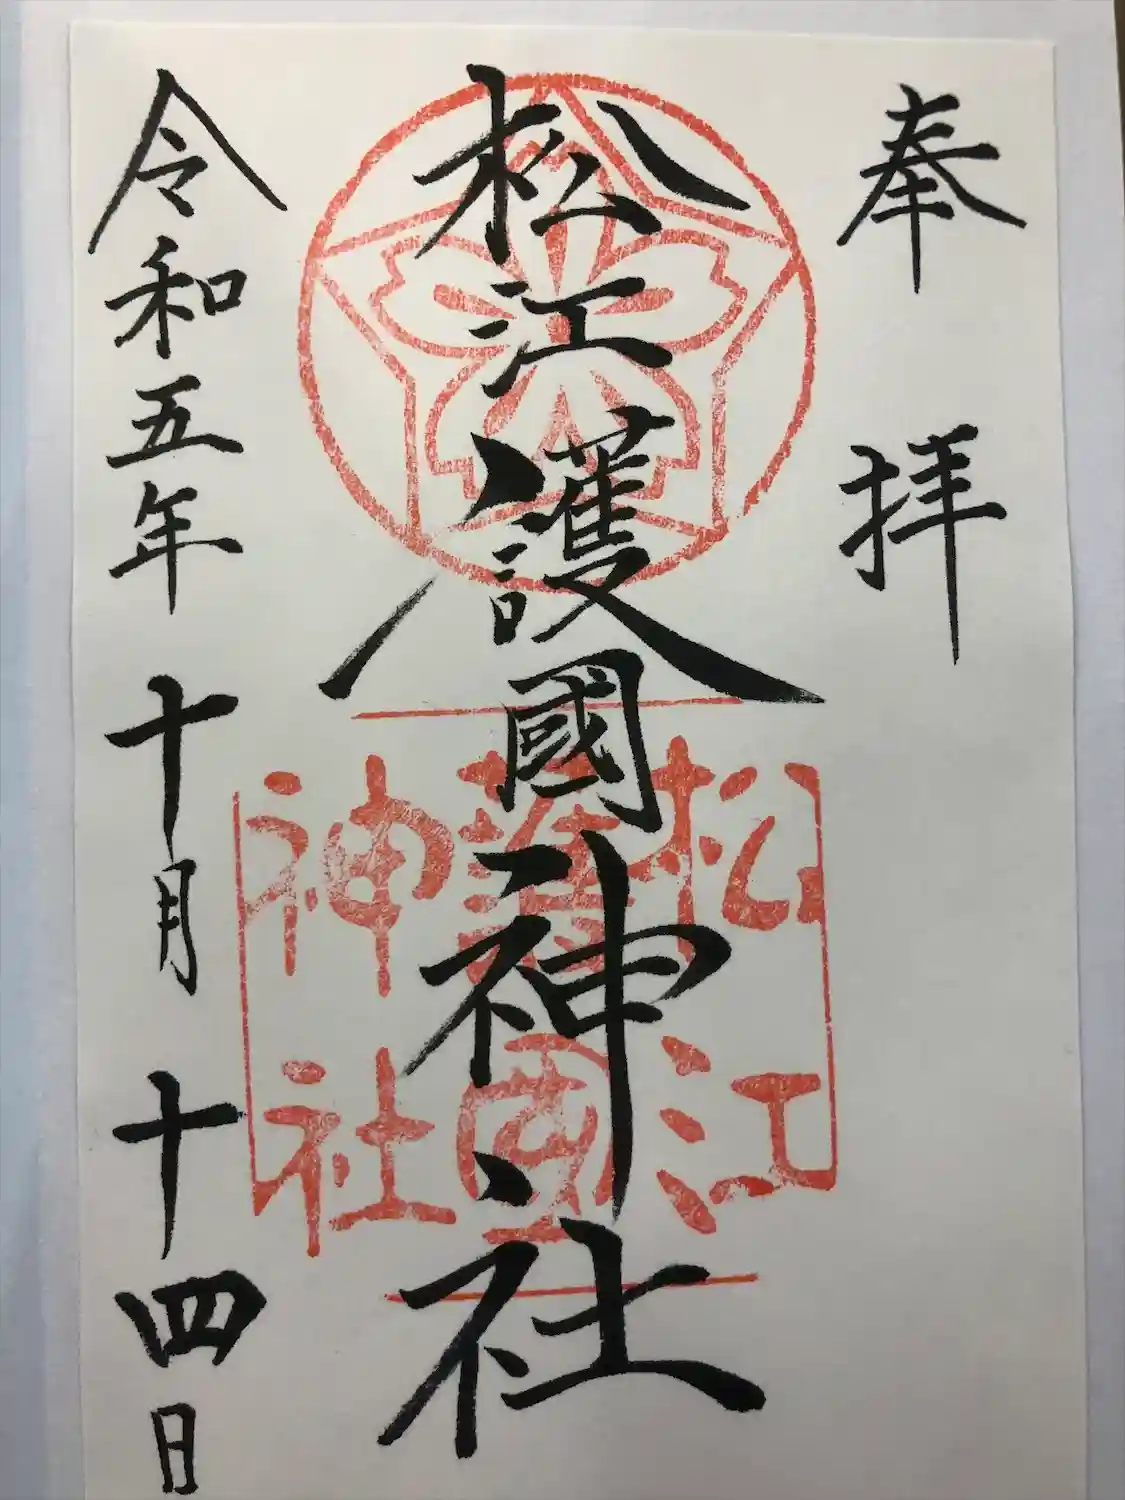 奉拝
松江護國神社
松江
護国
神社
令和五年十月十四日